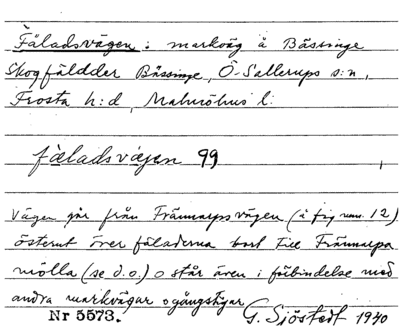 Fäladsvägen: markväg å Bässinge
Skogfäldder Bässinge, Ö-Sallerups s:n,
Frosta h:d, Malmöhus l:
fäladsvägen 99
Vägen går från Frännarpsvägen (å fig num. 12)
österut över fäladerna bort till Frännarpa
mölla (se d.o.) o står även i förbindelse med
andra markvägar o gångstigar
Nr 5573. G. Sjöstedt 1940